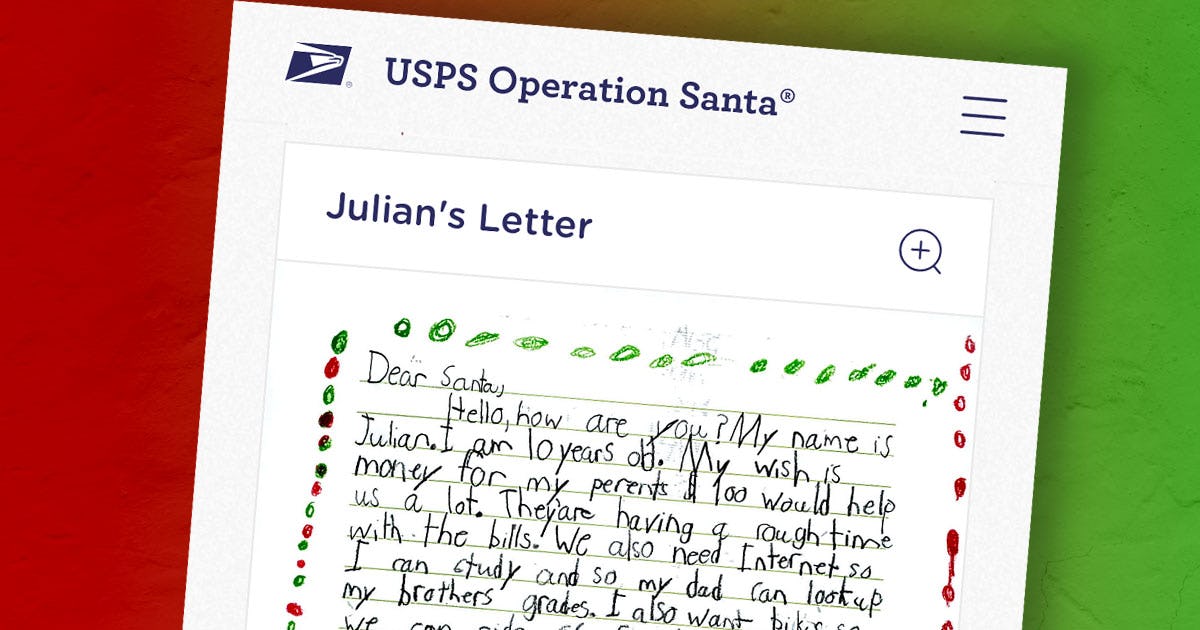 USPS Operation Santa®
Julian's Letter
Dear Santa,
Hello, how are you? My name is
Julian. I am 10 years old. My wish is
money for my perents $ 100 would help
us a lot. They'are having a rough time
with the bills. We also need Internet so
I can study and so my dad can look up
my brothers' grades. I also want bikes so
we can ride